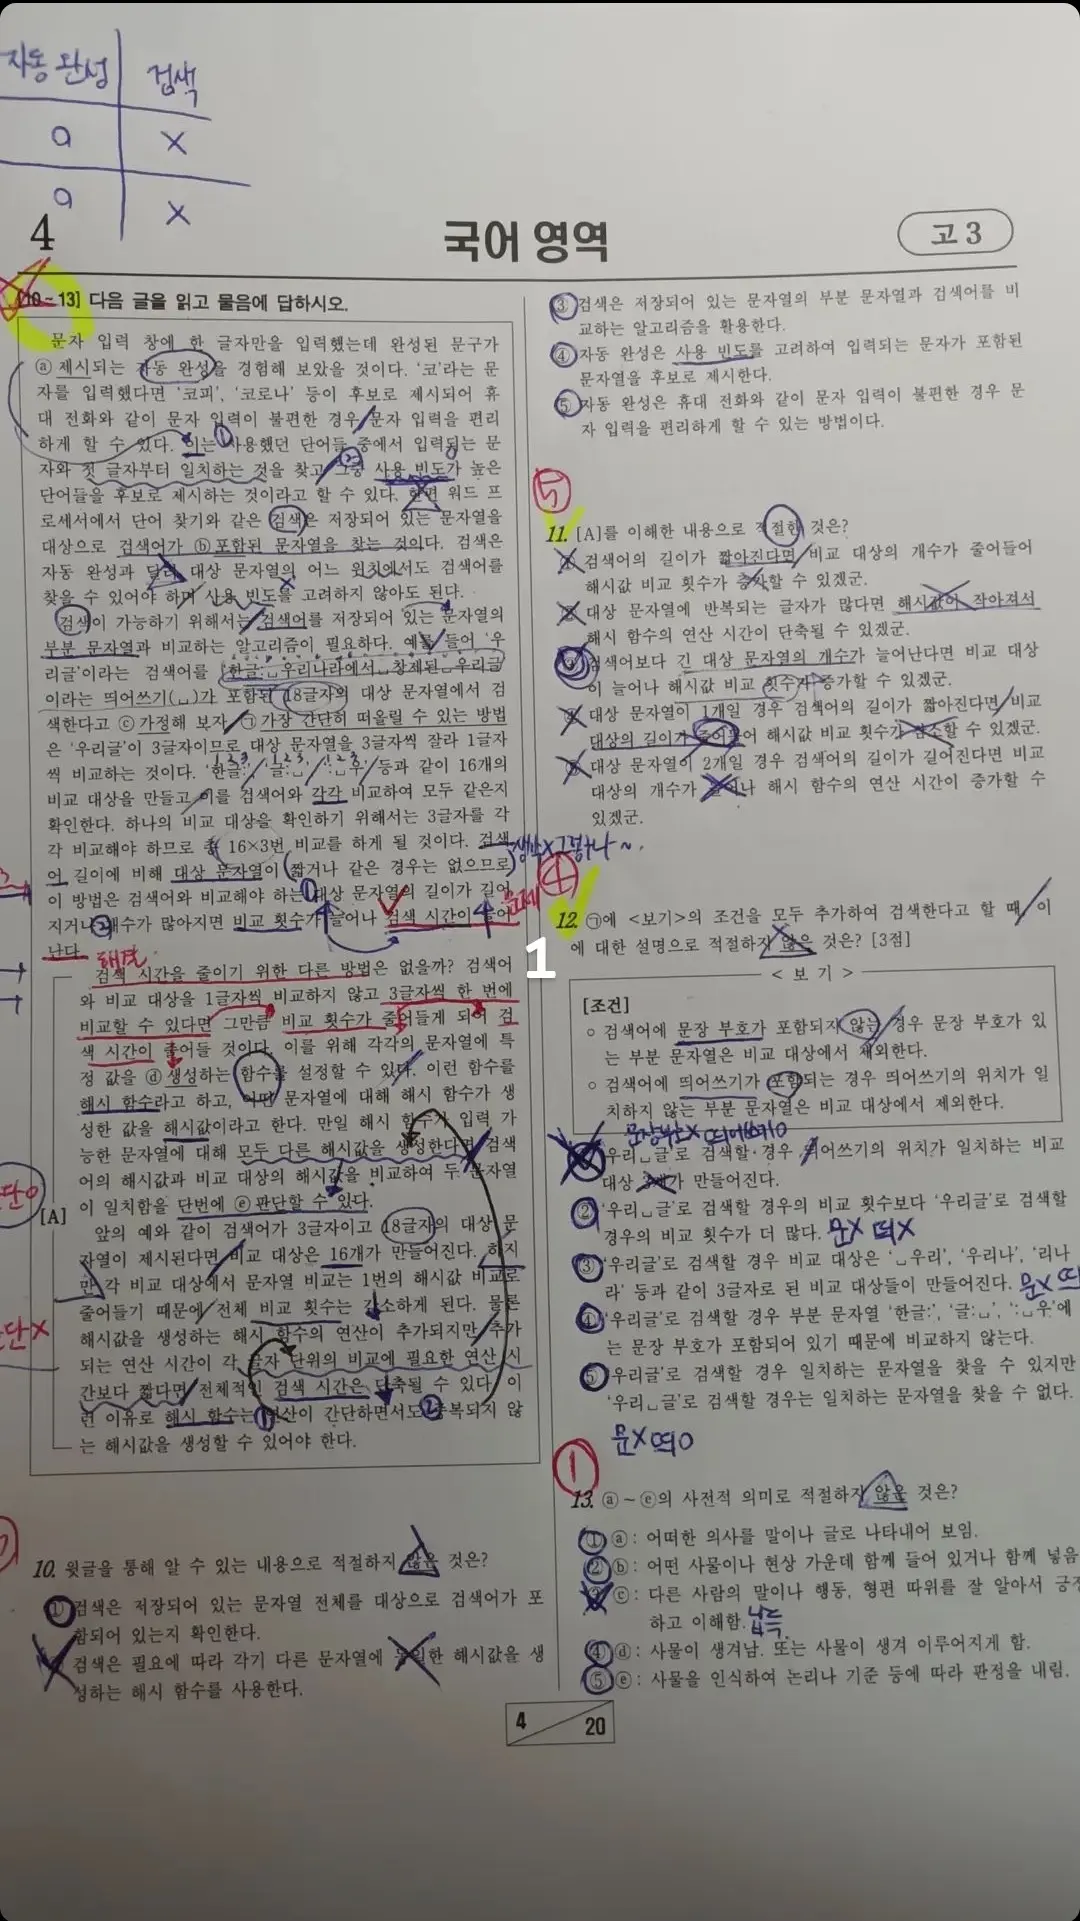 자동 완성 검색
a X
a X
4
국어 영역
고 3
[10~13] 다음 글을 읽고 물음에 답하시오.
문자 입력 창에 한 글자만을 입력했는데 완성된 문구가
ⓐ 제시되는 자동 완성을 경험해 보았을 것이다. ‘코’라는 문
자를 입력했다면 ‘코피’, ‘코로나’ 등이 후보로 제시되어 휴
대 전화와 같이 문자 입력이 불편한 경우 문자 입력을 편리
하게 할 수 있다. 이는 사용했던 단어들 중에서 입력되는 문
자와 첫 글자부터 일치하는 것을 찾고 그중 사용 빈도가 높은
단어들을 후보로 제시하는 것이라고 할 수 있다. 한편 워드 프
로세서에서 단어 찾기와 같은 검색은 저장되어 있는 문자열을
대상으로 검색어가 ⓑ 포함된 문자열을 찾는 것이다. 검색은
자동 완성과 달리 대상 문자열의 어느 위치에서도 검색어를
찾을 수 있어야 하며 사용 빈도를 고려하지 않아도 된다.
검색이 가능하기 위해서는 검색어를 저장되어 있는 문자열의
부분 문자열과 비교하는 알고리즘이 필요하다. 예를 들어 ‘우
리글’이라는 검색어를 ‘한글:␣우리나라에서␣창제된␣우리글’
이라는 띄어쓰기(␣)가 포함된 18글자의 대상 문자열에서 검
색한다고 ⓒ 가정해 보자. ㉠ 가장 간단히 떠올릴 수 있는 방법
은 ‘우리글’이 3글자이므로 대상 문자열을 3글자씩 잘라 1글자
씩 비교하는 것이다. ‘한글:’, ‘글:␣’, ‘:␣우’ 등과 같이 16개의
비교 대상을 만들고 이를 검색어와 각각 비교하여 모두 같은지
확인한다. 하나의 비교 대상을 확인하기 위해서는 3글자를 각
각 비교해야 하므로 총 16×3번 비교를 하게 될 것이다. 검색
어 길이에 비해 대상 문자열이 짧거나 같은 경우는 없으므로
이 방법은 검색어와 비교해야 하는 대상 문자열의 길이가 길어
지거나 개수가 많아지면 비교 횟수가 늘어나 검색 시간이 늘어
난다. 해결
문제
검색 시간을 줄이기 위한 다른 방법은 없을까? 검색어
와 비교 대상을 1글자씩 비교하지 않고 3글자씩 한 번에
비교할 수 있다면 그만큼 비교 횟수가 줄어들게 되어 검
색 시간이 줄어들 것이다. 이를 위해 각각의 문자열에 특
정 값을 ⓓ 생성하는 함수를 설정할 수 있다. 이런 함수를
해시 함수라고 하고, 어떤 문자열에 대해 해시 함수가 생
성한 값을 해시값이라고 한다. 만일 해시 함수가 입력 가
능한 문자열에 대해 모두 다른 해시값을 생성한다면 검색
어의 해시값과 비교 대상의 해시값을 비교하여 두 문자열
이 일치함을 단번에 ⓔ 판단할 수 있다.
[A]
앞의 예와 같이 검색어가 3글자이고 18글자의 대상 문
자열이 제시된다면 비교 대상은 16개가 만들어진다. 하지
만 각 비교 대상에서 문자열 비교는 1번의 해시값 비교로
줄어들기 때문에 전체 비교 횟수는 감소하게 된다. 물론
해시값을 생성하는 해시 함수의 연산이 추가되지만 추가
되는 연산 시간이 각 글자 단위의 비교에 필요한 연산 시
간보다 짧다면 전체적인 검색 시간은 단축될 수 있다. 이
런 이유로 해시 함수는 연산이 간단하면서도 중복되지 않
는 해시값을 생성할 수 있어야 한다.
10. 윗글을 통해 알 수 있는 내용으로 적절하지 않은 것은?
① 검색은 저장되어 있는 문자열 전체를 대상으로 검색어가 포
함되어 있는지 확인한다.
검색은 필요에 따라 각기 다른 문자열에 동일한 해시값을 생
성하는 해시 함수를 사용한다.
③ 검색은 저장되어 있는 문자열의 부분 문자열과 검색어를 비
교하는 알고리즘을 활용한다.
④ 자동 완성은 사용 빈도를 고려하여 입력되는 문자가 포함된
문자열을 후보로 제시한다.
⑤ 자동 완성은 휴대 전화와 같이 문자 입력이 불편한 경우 문
자 입력을 편리하게 할 수 있는 방법이다.
⑤
11. [A]를 이해한 내용으로 적절한 것은?
① 검색어의 길이가 짧아진다면 비교 대상의 개수가 줄어들어
해시값 비교 횟수가 증가할 수 있겠군.
② 대상 문자열에 반복되는 글자가 많다면 해시값이 작아져서
해시 함수의 연산 시간이 단축될 수 있겠군.
③ 검색어보다 긴 대상 문자열의 개수가 늘어난다면 비교 대상
이 늘어나 해시값 비교 횟수가 증가할 수 있겠군.
④ 대상 문자열이 1개일 경우 검색어의 길이가 짧아진다면 비교
대상의 길이가 줄어들어 해시값 비교 횟수가 감소할 수 있겠군.
⑤ 대상 문자열이 2개일 경우 검색어의 길이가 길어진다면 비교
대상의 개수가 늘어나 해시 함수의 연산 시간이 증가할 수
있겠군.
④
12. ㉠에 <보기>의 조건을 모두 추가하여 검색한다고 할 때, 이
에 대한 설명으로 적절하지 않은 것은? [3점]
1
<보 기>
[조건]
○ 검색어에 문장 부호가 포함되지 않는 경우 문장 부호가 있
는 부분 문자열은 비교 대상에서 제외한다.
○ 검색어에 띄어쓰기가 포함되는 경우 띄어쓰기의 위치가 일
치하지 않는 부분 문자열은 비교 대상에서 제외한다.
문장부호X 띄어쓰기O
‘우리␣글’로 검색할 경우 띄어쓰기의 위치가 일치하는 비교
대상 3개가 만들어진다.
② ‘우리␣글’로 검색할 경우의 비교 횟수보다 ‘우리글’로 검색할
경우의 비교 횟수가 더 많다. 문X 띄X
③ ‘우리글’로 검색할 경우 비교 대상은 ‘␣우리’, ‘우리나’, ‘리나
라’ 등과 같이 3글자로 된 비교 대상들이 만들어진다. 문X 띄
④ ‘우리글’로 검색할 경우 부분 문자열 ‘한글:’, ‘글:␣’, ‘:␣우’에
는 문장 부호가 포함되어 있기 때문에 비교하지 않는다.
⑤ ‘우리글’로 검색할 경우 일치하는 문자열을 찾을 수 있지만
‘우리␣글’로 검색할 경우는 일치하는 문자열을 찾을 수 없다.
문X띄O
①
13. ⓐ~ⓔ의 사전적 의미로 적절하지 않은 것은?
① ⓐ : 어떠한 의사를 말이나 글로 나타내어 보임.
② ⓑ : 어떤 사물이나 현상 가운데 함께 들어 있거나 함께 넣음
③ ⓒ : 다른 사람의 말이나 행동, 형편 따위를 잘 알아서 긍정
하고 이해함. 납득
④ ⓓ : 사물이 생겨남. 또는 사물이 생겨 이루어지게 함.
⑤ ⓔ : 사물을 인식하여 논리나 기준 등에 따라 판정을 내림.
4 20